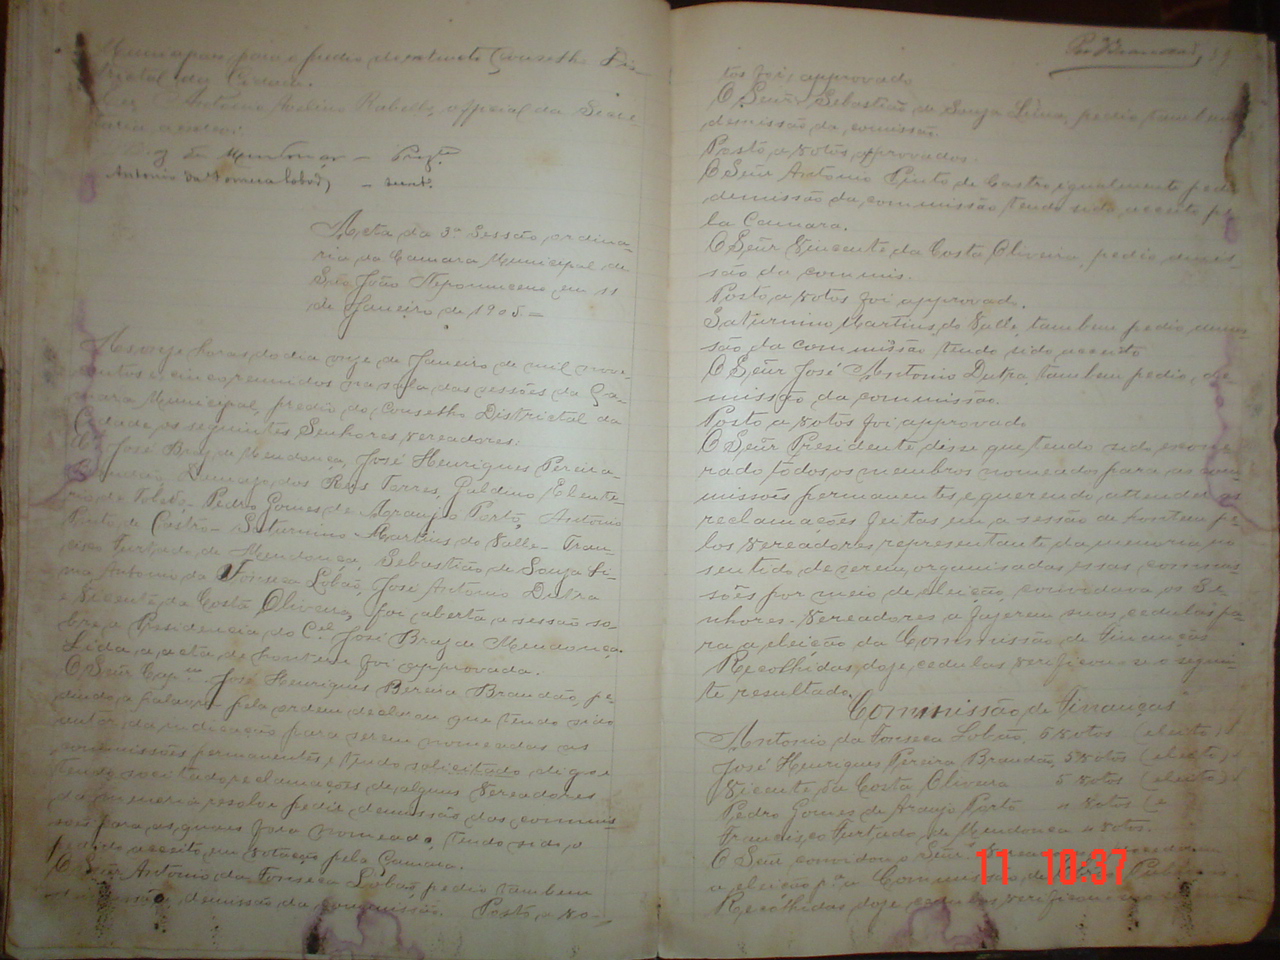 Municipal para o predio do extincto Conselho Dis-
trictal da Cidade.
Eu Antonio Avelino Rabello, official da Secre-
taria, a escrevi.
Antonio da Fonseca Lobão, – secret.
Acta da 3ª Sessão ordina-
ria da Camara Municipal de
São João Nepomuceno em 11
de Janeiro de 1905 =
As onze horas do dia onze de Janeiro de mil nove-
centos e cinco reunidos na sala das sessões da Ca-
mara Municipal, predio do Conselho Districtal da
Cidade, os seguintes Senhores vereadores:
José Braz de Mendonça, José Henriques Pereira
Brandão, Domingos dos Reis Torres, Galdino Eleute-
rio de Toledo, Pedro Gomes de Araujo Porto, Antonio
Pinto de Castro – Saturnino Martins do Valle – Fran-
cisco Furtado de Mendonça, Sebastião de Souza Li-
ma Antonio da Fonseca Lobão, José Antonio Dutra
e Vicente da Costa Oliveira, foi aberta a sessão so-
bre a Presidencia do Cel José Braz de Mendonça.
Lida a acta de hontem foi approvada.
O Señr Capm José Henriques Pereira Brandão, pe-
dindo a palavra pela ordem declarou que tendo sido
autor da indicação para serem nomeadas as
commissões permanentes e tendo solicitado digo e
tendo socitado reclamações de alguns Vereadores
da menoria resolve pedir demissão das commis-
sões para as quaes fora nomeado, tendo sido o
pedido acceito em votação pela Camara.
O Señr Antonio da Fonseca Lobão, pedio tambem
demissão da commissão. Posto a vo-
Per Brandão, 39
tos foi approvado
O Señr Sebastião de Souza Lima, pedio tambem
demissão da comissão.
Posto a votos approvados.
O Señr Antonio Pinto de Castro igualmente pedio
demissão da commissão tendo sido acceito pe-
la Camara.
O Señr Vincente da Costa Oliveira, pedio demis-
são da commis.
Posto a votos foi approvado.
Saturnino Martins do Valle, tambem pedio demis-
são da commissão tendo sido acceito
O Señr José Antonio Dutra, tambem pedio, de-
missão da commissão.
Posto a votos foi approvado
O Señr Presidente disse que tendo sido exone-
rado todos os membros nomeados para as com-
missões permanentes e querendo attender as
reclamações feitas em a sessão de hontem pe-
los vereadores representante da menoria no
sentido de serem organisadas essas commis-
sões por meio de eleição, convidava os Se-
nhores Vereadores a fazerem suas cedulas pa-
ra a eleição da Commissão de Finanças
Recolhidas doze cedulas verificou-se o seguin-
te resultado.
Commissão de Finanças
Antonio da Fonseca Lobão, 5 votos (eleito)
José Henriques Pereira Brandão, 5 votos (eleito)
Vicente da Costa Oliveira 5 votos (eleito)
Pedro Gomes de Araujo Porto votos
Francisco Furtado de Mendonça 4 votos.
O Señr convidou o Señr
a eleição pª a Commissão de Publicas
Recolhidas doze cedulas verificou-se o
11 10:37